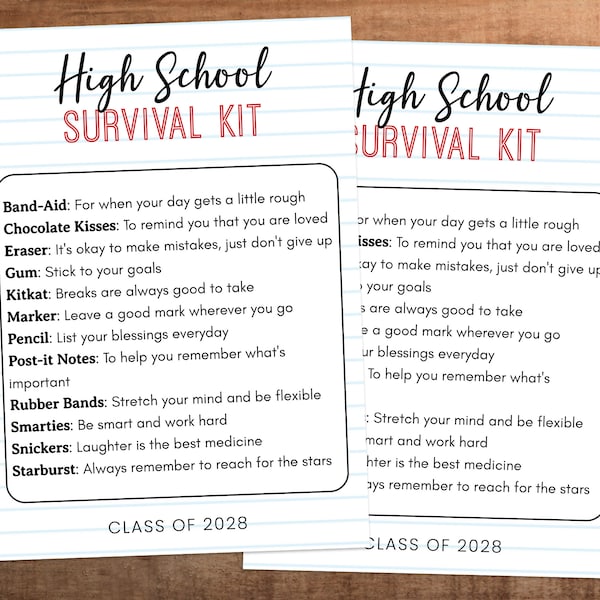 High School
SURVIVAL KIT
Band-Aid: For when your day gets a little rough
Chocolate Kisses: To remind you that you are loved
Eraser: It's okay to make mistakes, just don't give up
Gum: Stick to your goals
Kitkat: Breaks are always good to take
Marker: Leave a good mark wherever you go
Pencil: List your blessings everyday
Post-it Notes: To help you remember what's
important
Rubber Bands: Stretch your mind and be flexible
Smarties: Be smart and work hard
Snickers: Laughter is the best medicine
Starburst: Always remember to reach for the stars
CLASS OF 2028
High School
SURVIVAL KIT
For when your day gets a little rough
To remind you that you are loved
to make mistakes, just don't give up
your goals
are always good to take
a good mark wherever you go
blessings everyday
To help you remember what's
Stretch your mind and be flexible
and work hard
is the best medicine
remember to reach for the stars
CLASS OF 2028